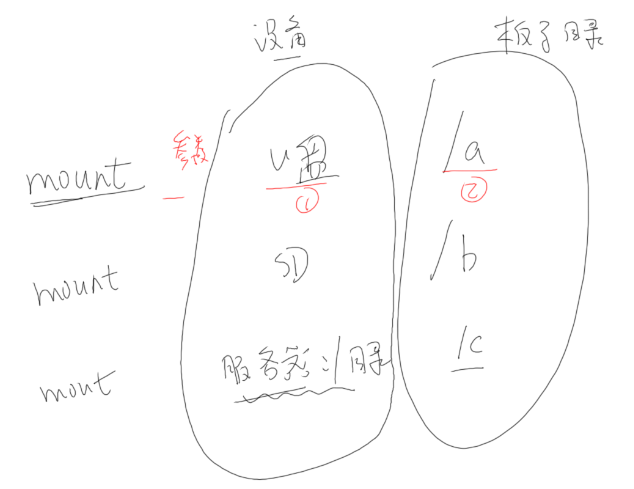 设备 板子目录
mount 参数 U盘 /a
① ②
mount SD /b
mout 服务器:/目录 /c